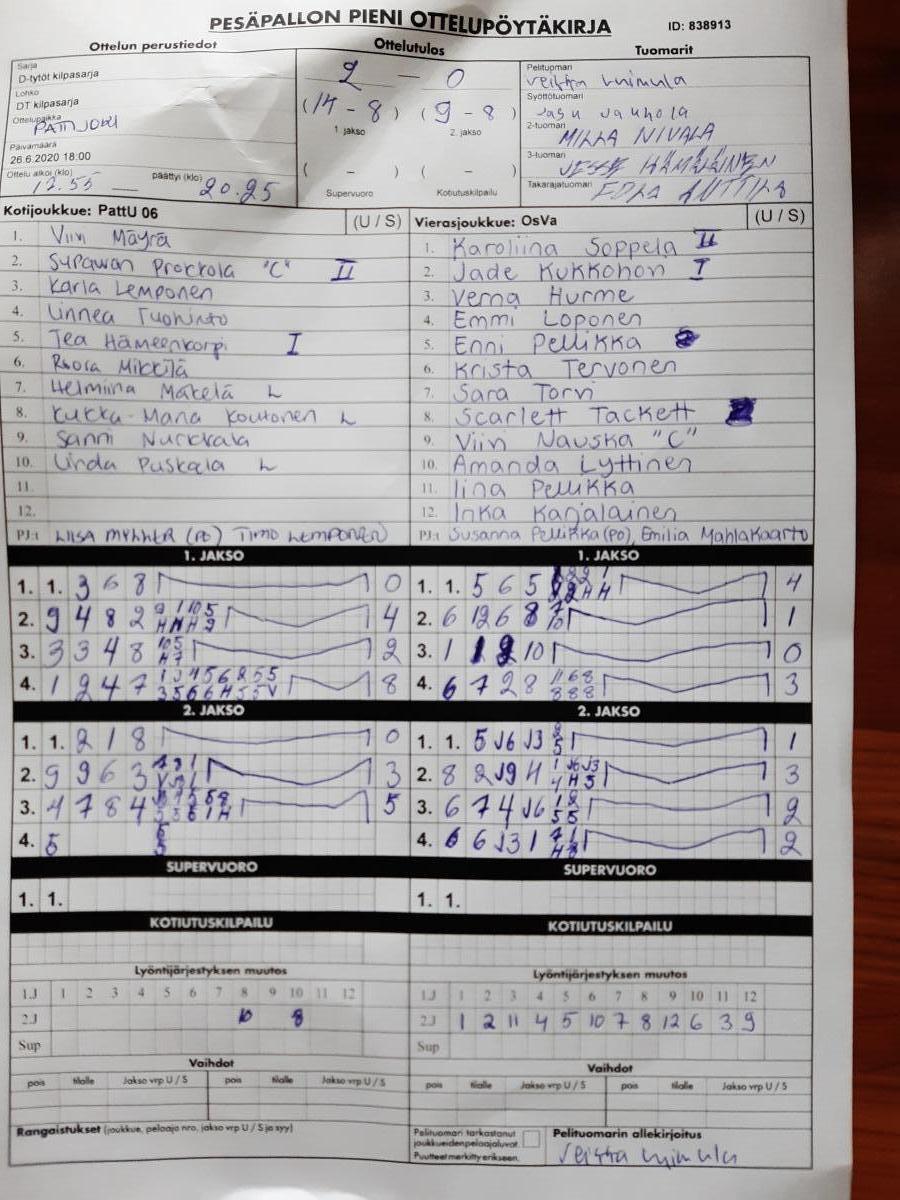 PESÄPALLON PIENI OTTELUPÖYTÄKIRJA
ID: 838913
Ottelun perustiedot
Sarja
D-tytöt kilpasarja
Lohko
DT kilpasarja
Ottelupaikka
PATTIJOKI
Päivämäärä
26.6.2020 18:00
Ottelu alkoi (klo)
17.55
päättyi (klo)
20.25
Ottelutulos
2 - 0
(14 - 8) (9 - 8)
1. jakso 2. jakso
( - ) ( - )
Supervuoro Kotiutuskilpailu
Tuomarit
Pelituomari
Syöttötuomari
2-tuomari
MILLA NIVALA
3-tuomari
Takarajatuomari
Kotijoukkue: PattU 06 (U / S)
1. Viivi Mäyrä
2. Prokkola "C" II
3. Karla Lemponen
4. Linnea Tuohinto
5. Tea Hämeenkorpi I
6. Roosa Mikkilä
7. Helmiina Mäkelä L
8. Kukka-Maria L
9. Sanni Nurkkala
10. Linda Puskala L
11.
12.
PJ:t LIISA (PO) TIMO LEMPONEN
Vierasjoukkue: OsVa (U / S)
1. Karoliina Soppela II
2. Jade Kukkohon I
3. Verna Hurme
4. Emmi Loponen
5. Enni Pellikka
6. Krista Tervonen
7. Sara Torvi
8. Scarlett Tackett
9. Viivi Nauska "C"
10. Amanda Lyttinen
11. Iina Pellikka
12. Inka Karjalainen
PJ:t Susanna Pellikka (PO), Emilia Mahlakaarto
1. JAKSO
1. 1. 3 6 8 0
2. 9 4 8 2 4
3. 3 3 4 8 2
4. 1 2 4 7 8
2. JAKSO
1. 1. 2 1 8 0
2. 9 9 6 3 3
3. 4 7 8 4 5
4. 5
SUPERVUORO
1. 1.
KOTIUTUSKILPAILU
Lyöntijärjestyksen muutos
1.J 1 2 3 4 5 6 7 8 9 10 11 12
2.J 10 8
Sup
Vaihdot
pois tilalle Jakso vrp U / S pois tilalle Jakso vrp U / S
Rangaistukset (joukkue, pelaaja nro, jakso vrp U / S ja syy)
1. JAKSO
1. 1. 5 6 5 4
2. 6 12 6 8 1
3. 1 10 0
4. 6 7 2 8 3
2. JAKSO
1. 1. 5 J6 J3 1
2. 8 2 J9 4 3
3. 6 7 4 J6 2
4. 6 6 J3 1 2
SUPERVUORO
1. 1.
KOTIUTUSKILPAILU
Lyöntijärjestyksen muutos
1.J 1 2 3 4 5 6 7 8 9 10 11 12
2.J 1 2 11 4 5 10 7 8 12 6 3 9
Sup
Vaihdot
pois tilalle Jakso vrp U / S pois tilalle Jakso vrp U / S
Pelituomari tarkastanut
joukkueiden pelaajaluvat.
Puutteet merkitty erikseen.
Pelituomarin allekirjoitus